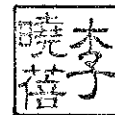 李
曉蓓